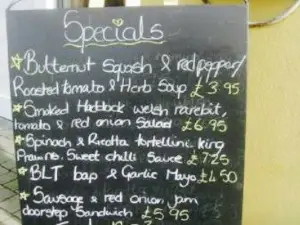 Specials
Butternut Squash & redpepper/
Roasted tomato & Herb Soup £3.95
Smoked Haddock welsh rarebit,
tomato & red onion Salad £6.95
Spinach & Ricotta tortellini king
Prawns. Sweet chilli Sauce £7.25
BLT bap & Garlic Mayo £4.50
Sausage & red onion jam
doorstep Sandwich £5.95